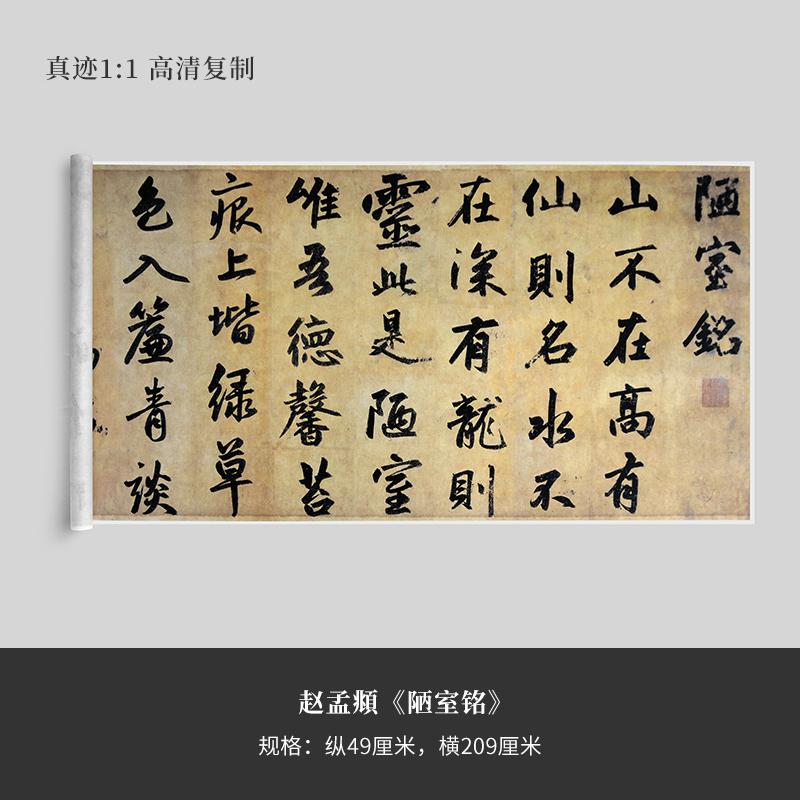 真迹1:1 高清复制
陋室銘
山不在高有
仙則名水不
在深有龍則
靈此是陋室
惟吾德馨苔
痕上堦緑草
色入簾青談
赵孟頫《陋室铭》
规格：纵49厘米，横209厘米